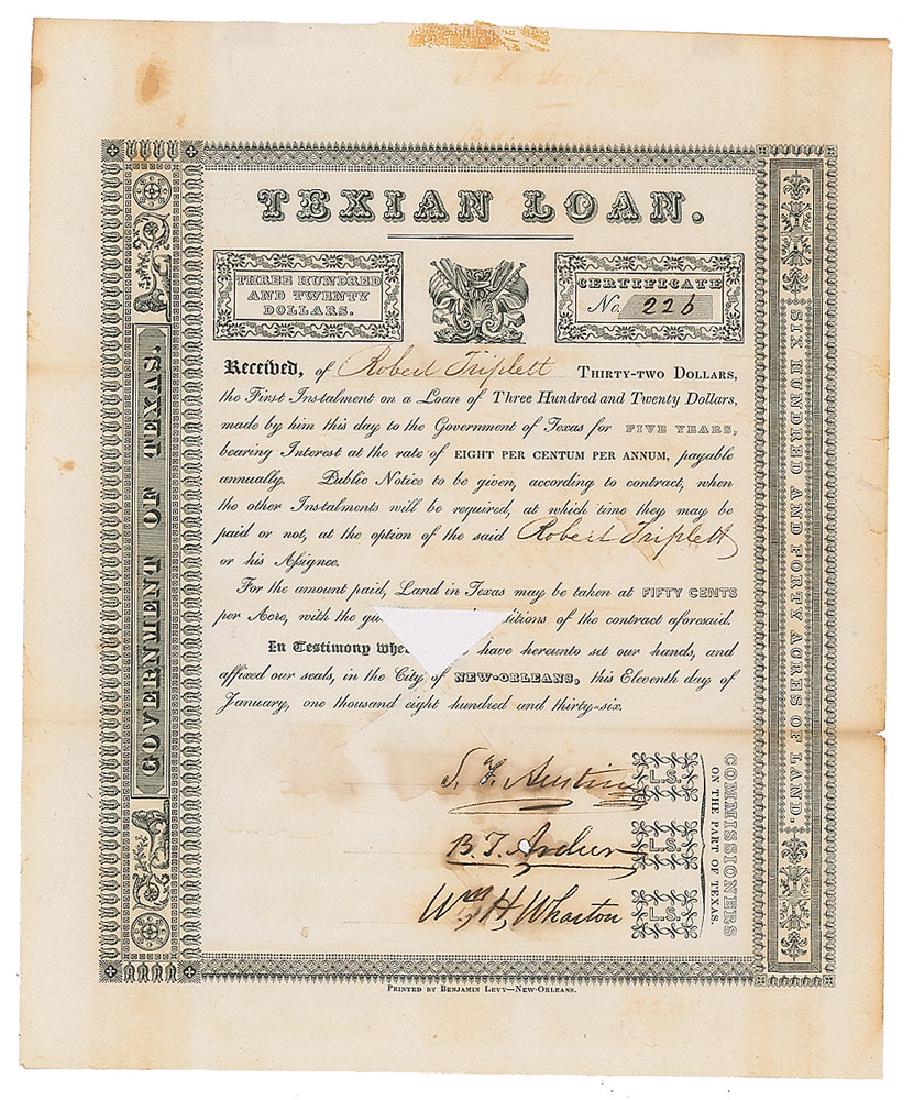 TEXIAN LOAN.
THREE HUNDRED
AND TWENTY
DOLLARS.
CERTIFICATE
No. 226
Received, of Robert Triplett THIRTY-TWO DOLLARS,
the First Instalment on a Loan of Three Hundred and Twenty Dollars,
made by him this day to the Government of Texas for FIVE YEARS,
bearing Interest at the rate of EIGHT PER CENTUM PER ANNUM, payable
annually. Public Notice to be given, according to contract, when
the other Instalments will be required, at which time they may be
paid or not, at the option of the said Robert Triplett
or his Assignee.
For the amount paid, Land in Texas may be taken at FIFTY CENTS
per Acre, with the gu ditions of the contract aforesaid.
In Testimony whe have hereunto set our hands, and
affixed our seals, in the City of NEW-ORLEANS, this Eleventh day of
January, one thousand eight hundred and thirty-six.
S. F. Austin L.S.
B. T. Archer L.S.
Wm. H. Wharton L.S.
COMMISSIONERS
ON THE PART OF TEXAS.
GOVERNMENT OF TEXAS.
SIX HUNDRED AND FORTY ACRES OF LAND.
PRINTED BY BENJAMIN LEVY—NEW-ORLEANS.